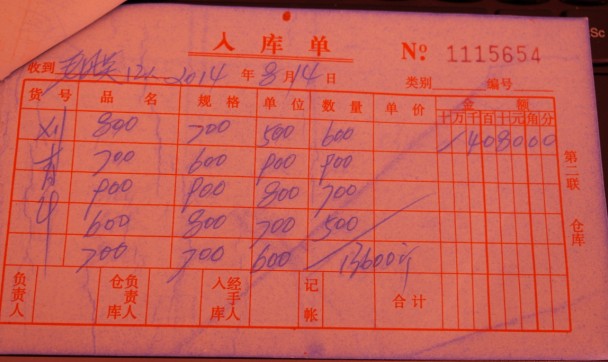 入库单
No. 1115654
收到 2014年8月14日 类别 编号
货号 品名 规格 单位 数量 单价 金额
十万千百十元角分
刘 800 700 500 600 1408000
青 700 600 900 900
900 900 800 700
600 800 700 500
700 700 600 13600斤
负责人 仓库负责人 入库经手人 记帐 合计
第二联 仓库